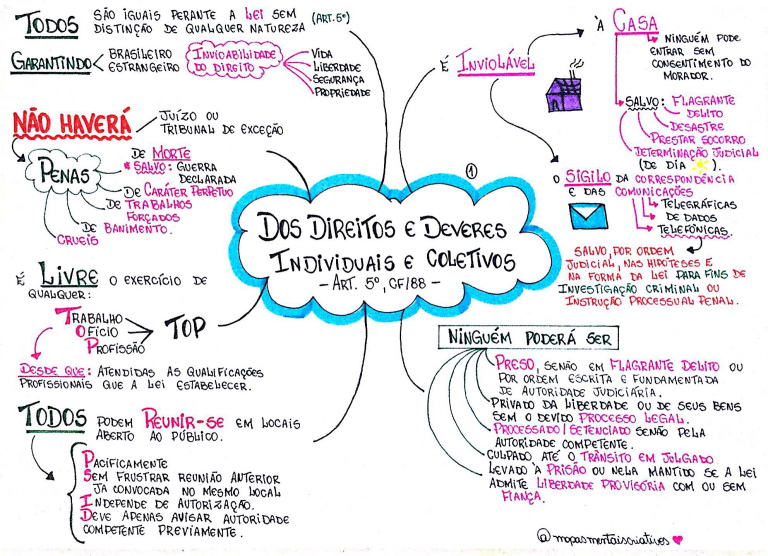 TODOS SÃO IGUAIS PERANTE A LEI SEM
DISTINÇÃO DE QUALQUER NATUREZA (ART. 5º)
GARANTINDO
BRASILEIRO
ESTRANGEIRO
INVIOABILIDADE
DO DIREITO
VIDA
LIBERDADE
SEGURANÇA
PROPRIEDADE
NÃO HAVERÁ
JUÍZO OU
TRIBUNAL DE EXCEÇÃO
PENAS
DE MORTE
* SALVO: GUERRA
DECLARADA
DE CARÁTER PERPETUO
DE TRABALHOS
FORÇADOS
DE BANIMENTO.
CRUEIS
É LIVRE O EXERCÍCIO DE
QUALQUER:
TRABALHO
OFÍCIO
PROFISSÃO
TOP
DESDE QUE: ATENDIDAS AS QUALIFICAÇÕES
PROFISSIONAIS QUE A LEI ESTABELECER.
TODOS PODEM REUNIR-SE EM LOCAIS
ABERTO AO PÚBLICO.
PACIFICAMENTE
SEM FRUSTRAR REUNIÃO ANTERIOR
JÁ CONVOCADA NO MESMO LOCAL
INDEPENDE DE AUTORIZAÇÃO.
DEVE APENAS AVISAR AUTORIDADE
COMPETENTE PREVIAMENTE.
1
DOS DIREITOS E DEVERES
INDIVIDUAIS E COLETIVOS
- ART. 5º, CF/88 -
É INVIOLÁVEL
À CASA
NINGUÉM PODE
ENTRAR SEM
CONSENTIMENTO DO
MORADOR.
SALVO: FLAGRANTE
DELITO
DESASTRE
PRESTAR SOCORRO
DETERMINAÇÃO JUDICIAL
(DE DIA).
O SIGILO DA CORRESPONDÊNCIA
E DAS COMUNICAÇÕES
TELEGRÁFICAS
DE DADOS
TELEFÔNICAS.
SALVO, POR ORDEM
JUDICIAL, NAS HIPÓTESES E
NA FORMA DA LEI PARA FINS DE
INVESTIGAÇÃO CRIMINAL OU
INSTRUÇÃO PROCESSUAL PENAL.
NINGUÉM PODERÁ SER
PRESO, SENÃO EM FLAGRANTE DELITO OU
POR ORDEM ESCRITA E FUNDAMENTADA
DE AUTORIDADE JUDICIÁRIA.
PRIVADO DA LIBERDADE OU DE SEUS BENS
SEM O DEVIDO PROCESSO LEGAL.
PROCESSADO/SETENCIADO SENÃO PELA
AUTORIDADE COMPETENTE.
CULPADO ATÉ O TRÂNSITO EM JULGADO
LEVADO À PRISÃO OU NELA MANTIDO SE A LEI
ADMITE LIBERDADE PROVISÓRIA COM OU SEM
FIANÇA.
@mapasmentaiscriativos